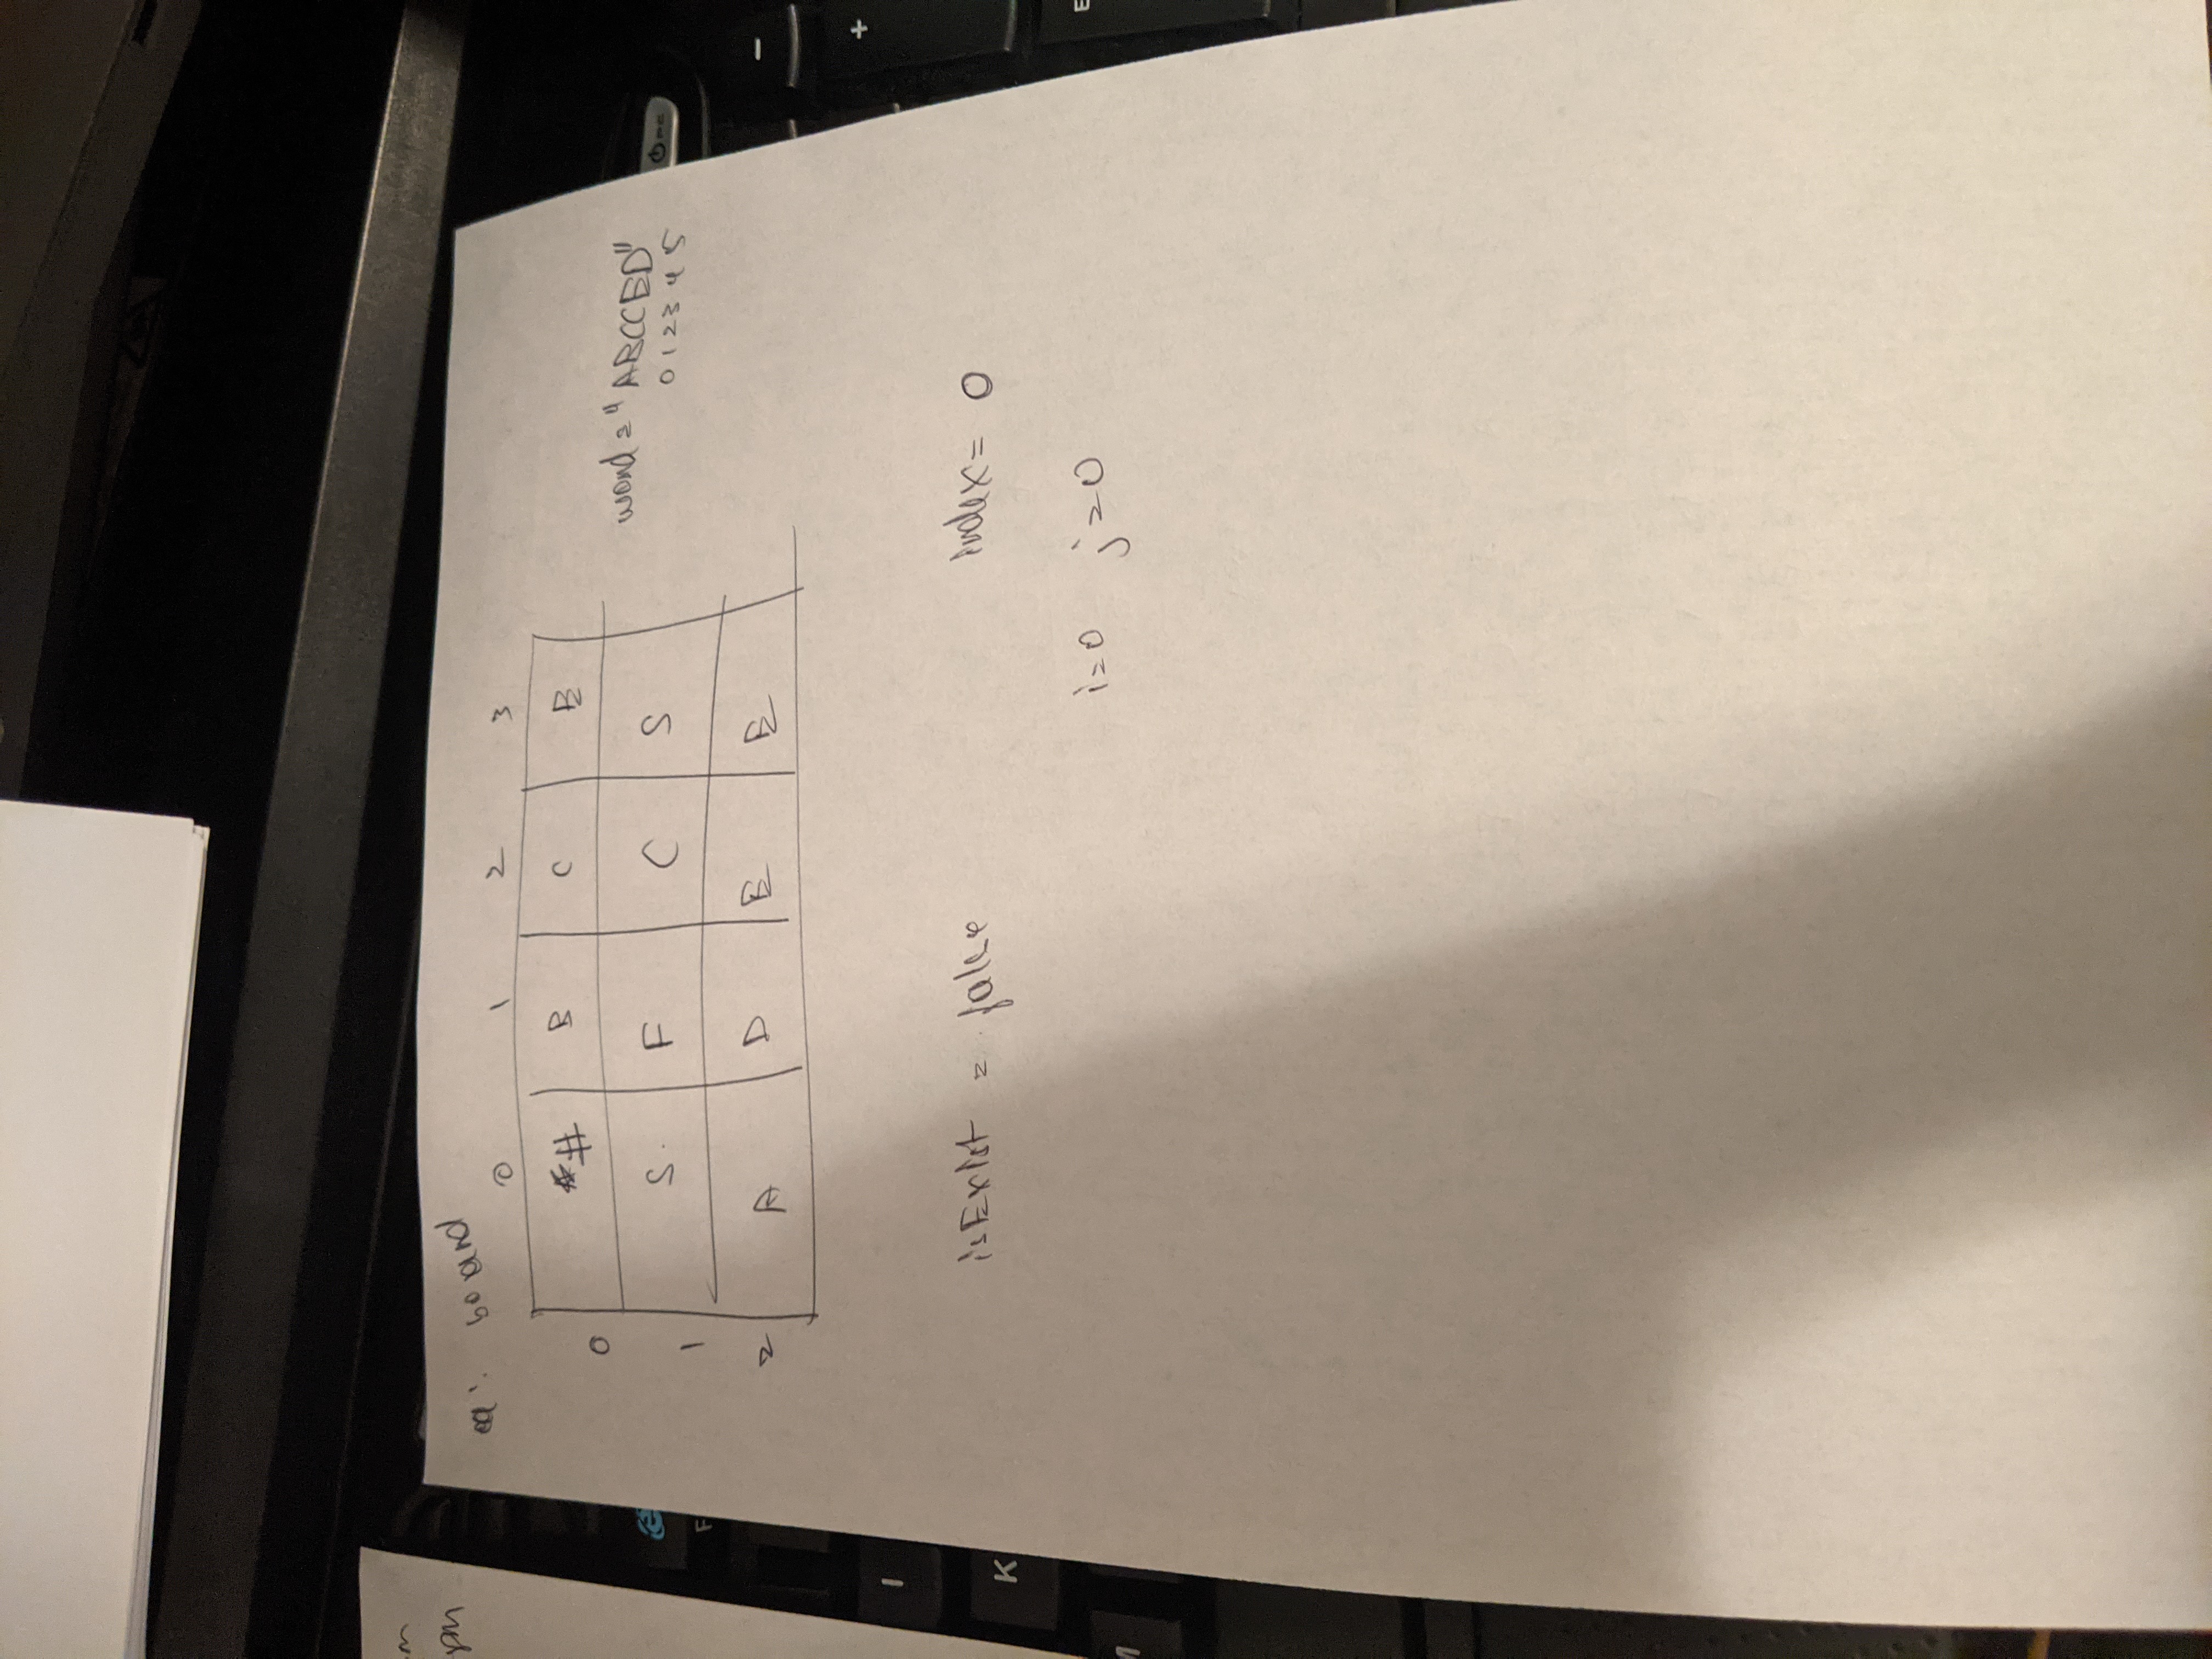 eg: board
0 1 2 3
0 # B C E
1 S F C S
2 A D E E
word = "ABCCED"
0 1 2 3 4 5
isExist = false index = 0
i=0 j=0
m
pm
F
I
K
M
-
+
E